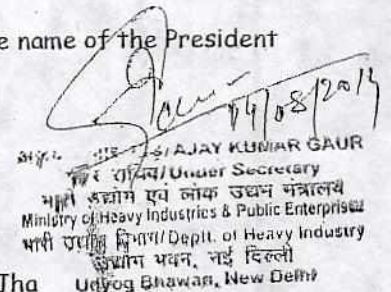 e name of the President
14/08/2014
/AJAY KUMAR GAUR
/Under Secretary
भारी उद्योग एवं लोक उद्यम मंत्रालय
Ministry of Heavy Industries & Public Enterprises
भारी उद्योग विभाग/Deptt. of Heavy Industry
उद्योग भवन, नई दिल्ली
Jha Udyog Bhawan, New Delhi